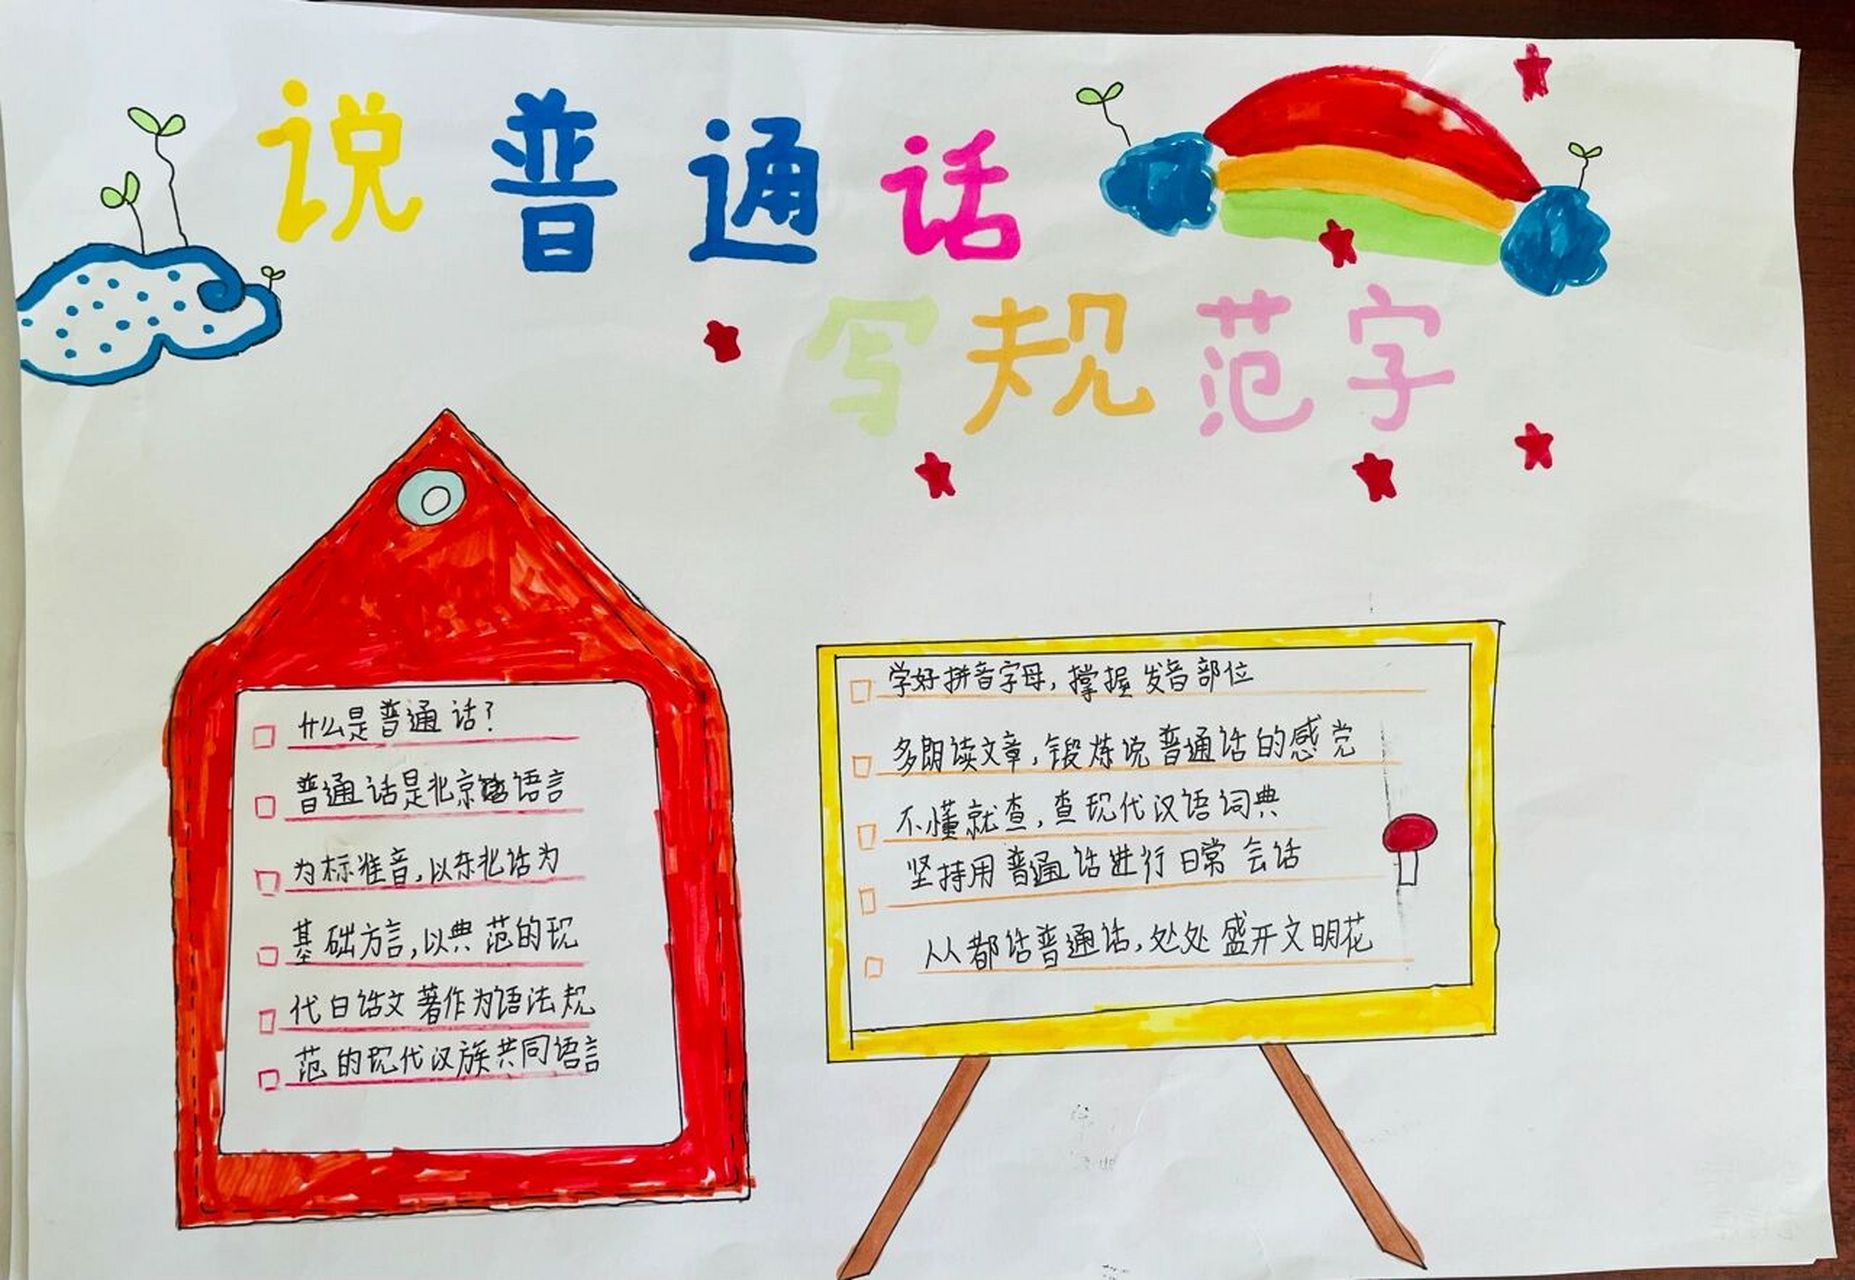 说普通话
写规范字
什么是普通话?
普通话是北京语言
为标准音,以东北话为
基础方言,以典范的现
代白话文著作为语法规
范的现代汉族共同语言
学好拼音字母,撑握发音部位
多朗读文章,锻炼说普通话的感觉
不懂就查,查现代汉语词典
坚持用普通话进行日常会话
人人都话普通话,处处盛开文明花